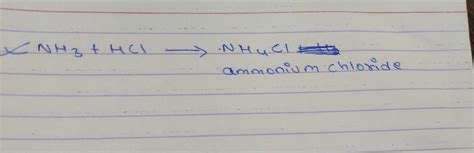 NH3 + HCl → NH4Cl
ammonium chloride